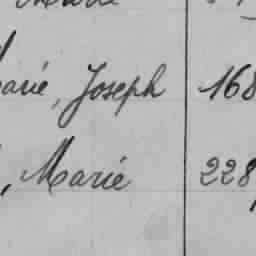 arié, Joseph 168
, Marié 228